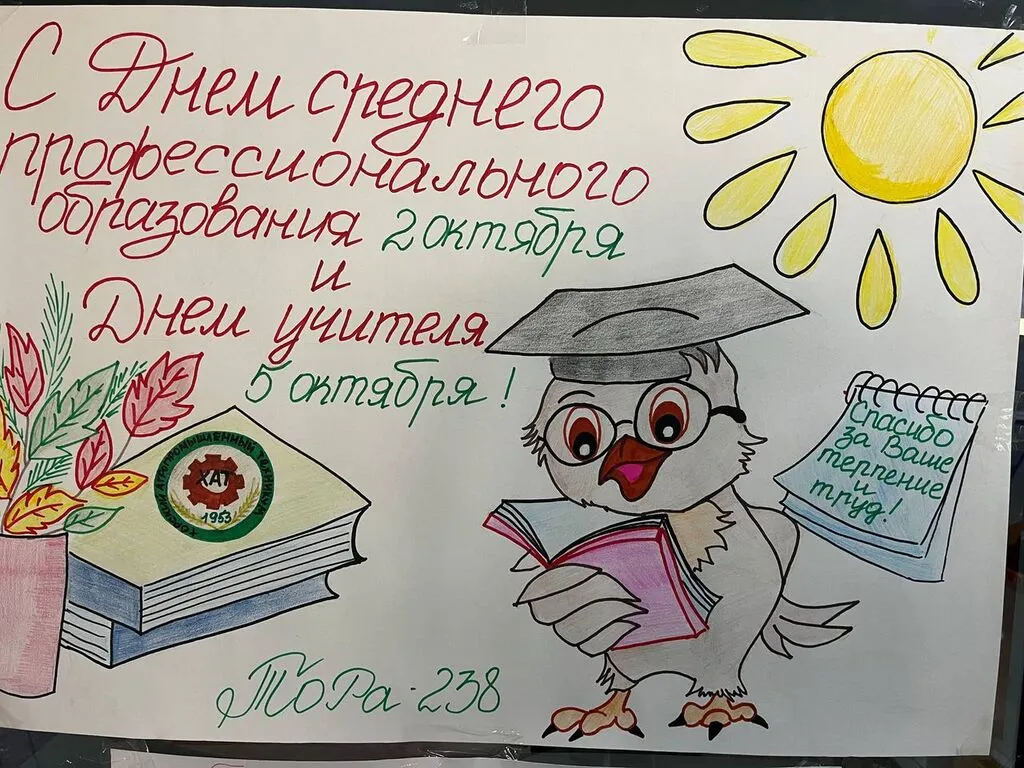 С Днем среднего
профессионального
образования 2 октября
и
Днем учителя
5 октября!
Спасибо
за Ваше
терпение
и
труд!
ХАТ
1953
ТОРа-238